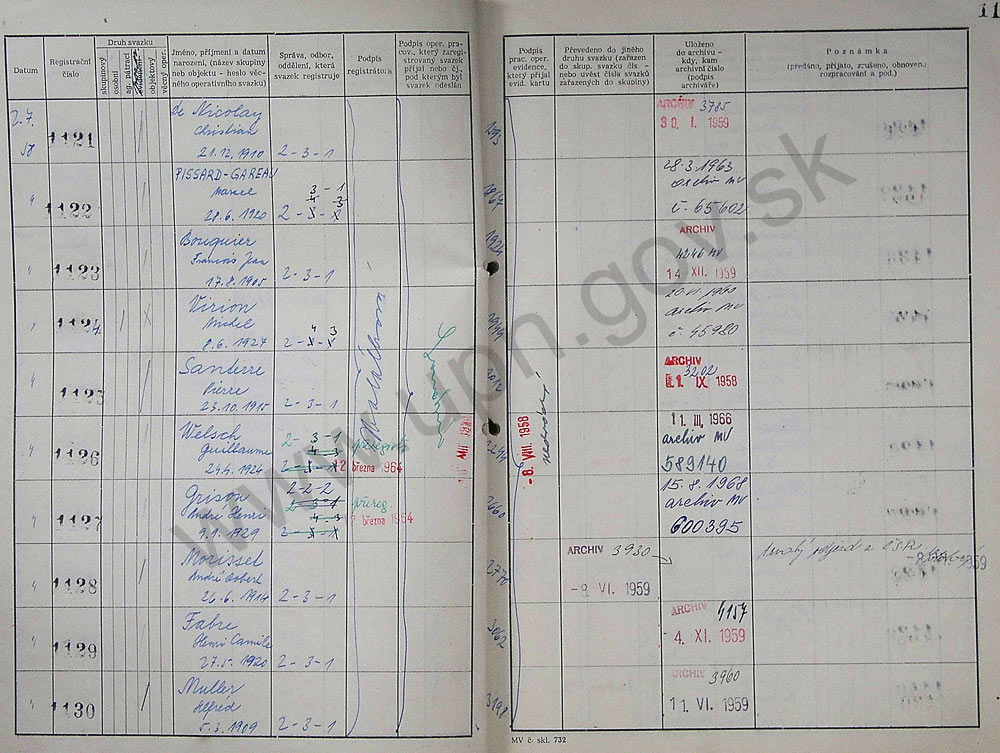 11
Datum
Registrační
číslo
Druh svazku
skupinový
osobní
ag. pátrací
objektový
věcný oper.
Jméno, příjmení a datum
narození, (název skupiny
neb objektu - heslo věc-
ného operativního svazku)
Správa, odbor,
oddělení, která
svazek registruje
Podpis
registrátora
Podpis oper. pra-
cov., který zaregi-
stroval svazek
přijal nebo čj.,
pod kterým byl
svazek odeslán
Podpis
prac. oper.
evidence,
který přijal
evid. kartu
Převedeno do jiného
druhu svazku (zařazen
do skup. svazku čís. -
nebo uvést čísla svazků
zařazených do skupiny)
Uloženo
do archivu -
kdy, kam
archivní číslo
(podpis
archiváře)
Poznámka
(předáno, přijato, zrušeno, obnoveno,
rozpracování a pod.)
2.7.
58
1121
de Nicolay
Christian
21.12.1910 2-3-1
ARCHIV 3785
30. I. 1959
" 1122
PISSARD-GAREAU
Marcel 3-1
28.6.1920
28.3.1963
archiv MV
č. 65602
" 1123
Bouquier
Francois Jean
17.8.1905 2-3-1
1924
ARCHIV
4246 MV
14. XII. 1959
" 1124
Virion
Michel
8.6.1927
archiv MV
č 45980
" 1125
Sanberre
Pierre
23.10.1915 2-3-1
ARCHIV
3202
IX 1958
-8. VIII. 1958
" 1126
Welsch
Guillaume 2-3-1
24.4.1924
přeregistr.
března 1964
11. III. 1966
archiv MV
589140
" 1127
Grison 2-2-2
André Henri 2-3-1
9.1.1929
přereg.
2 března 1964
15.8.1968
archiv MV
600395
" 1128
Morissel
André Robert
26.6.1914 2-3-1
ARCHIV 3930
-8. VI. 1959
" 1129
Fabre
Henri Camille
27.5.1920 2-3-1
3062
ARCHIV 4157
4. XI. 1959
" 1130
Muller
Alfréd
5.3.1909 2-3-1
3198
ARCHIV 3960
11. VI. 1959
MV č. skl. 732
www.upn.gov.sk